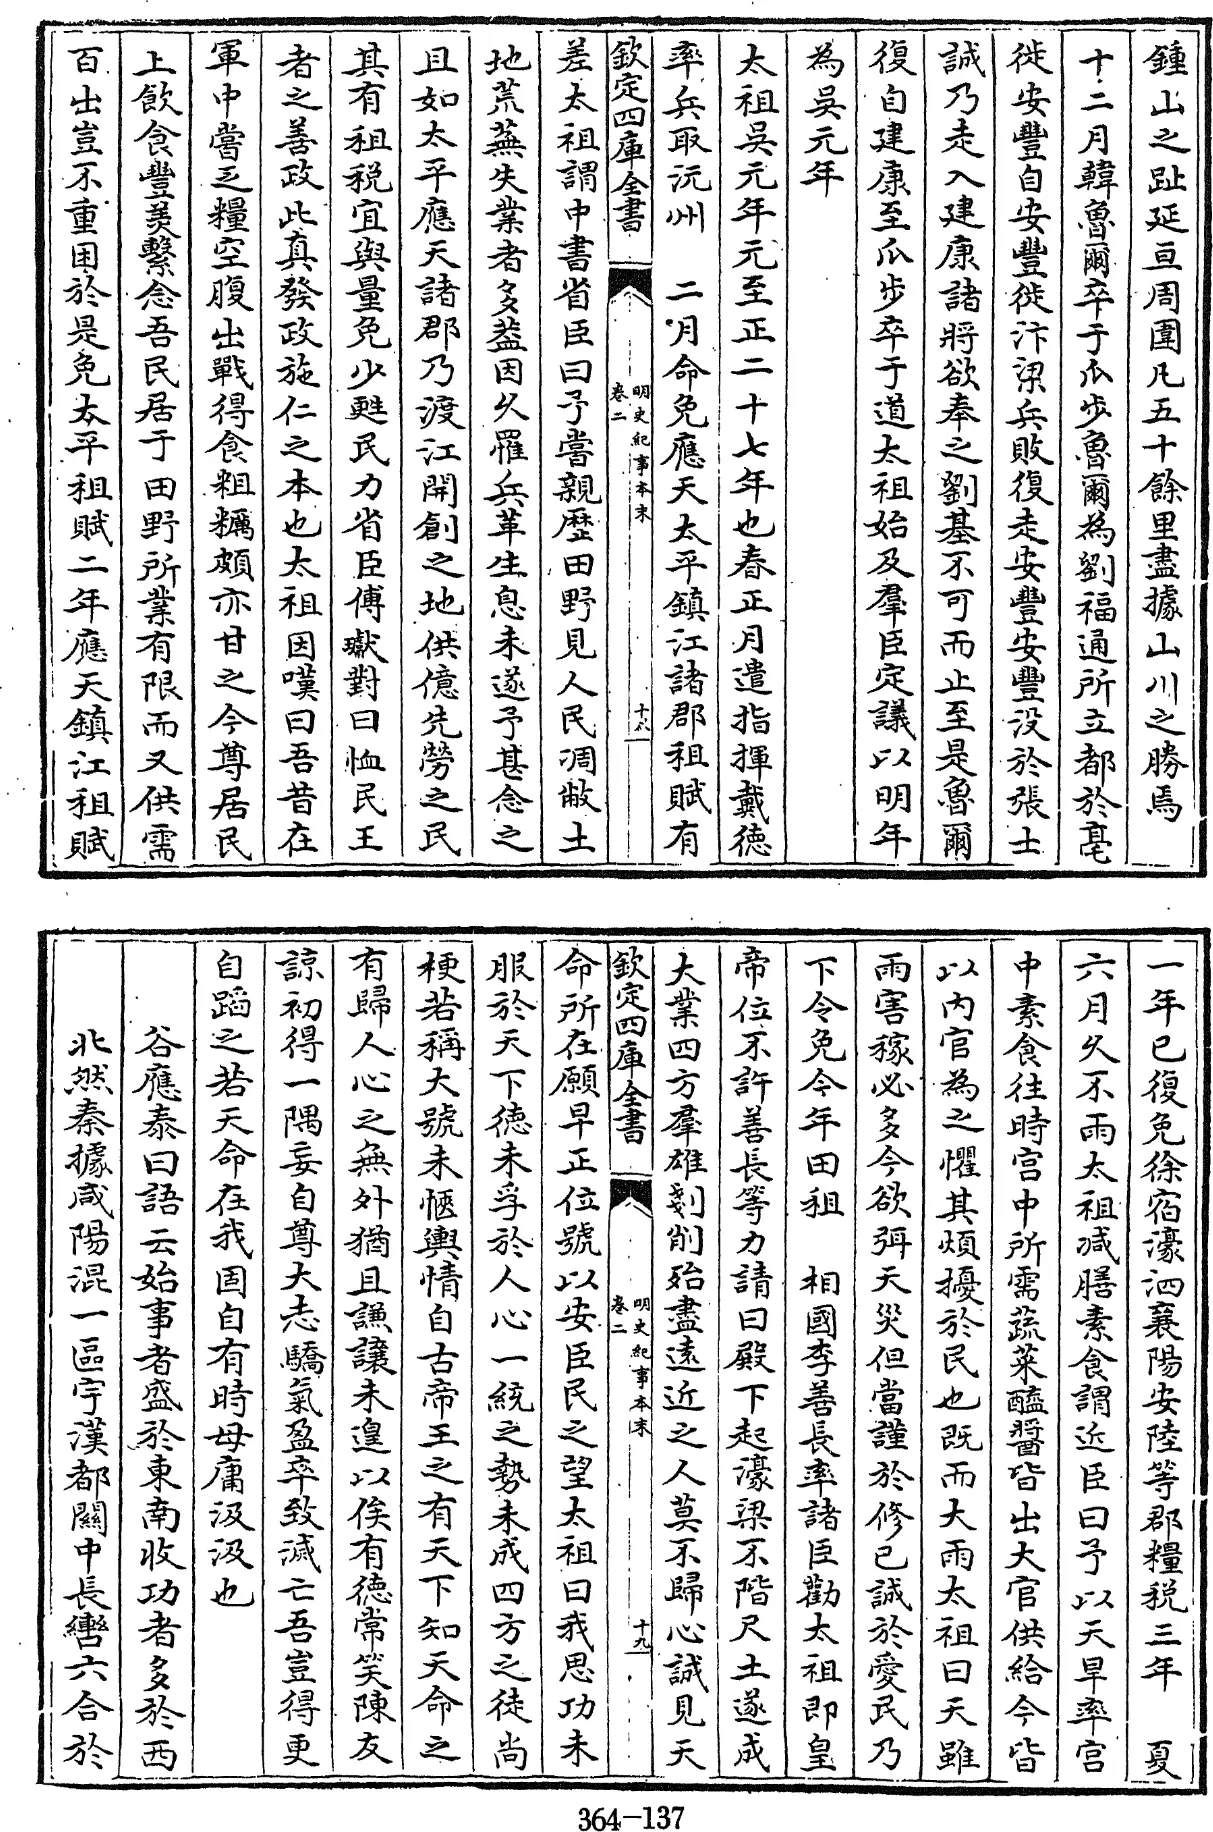 鍾山之趾延亘周圍凡五十餘里盡據山川之勝焉
十二月韓魯爾卒于瓜步魯爾為劉福通所立都於亳
徙安豐自安豐徙汴梁兵敗復走安豐安豐没於張士
誠乃走入建康諸將欲奉之劉基不可而止至是魯爾
復自建康至瓜步卒于道太祖始及羣臣定議以明年
為吳元年
太祖吳元年元至正二十七年也春正月遣指揮戴德
率兵取沅州　二月命免應天太平鎮江諸郡租賦有
欽定四庫全書
明史紀事本末
卷二
十八
差太祖謂中書省臣曰予嘗親歷田野見人民凋敝土
地荒蕪失業者多葢因久罹兵革生息未遂予甚念之
且如太平應天諸郡乃渡江開創之地供億先勞之民
其有租税宜與量免少甦民力省臣傅瓛對曰恤民王
者之善政此真發政施仁之本也太祖因嘆曰吾昔在
軍中嘗乏糧空腹出戰得食粗糲頗亦甘之今尊居民
上飲食豐美繫念吾民居于田野所業有限而又供需
百出豈不重困於是免太平租賦二年應天鎮江租賦
一年已復免徐宿濠泗襄陽安陸等郡糧税三年　夏
六月久不雨太祖減膳素食謂近臣曰予以天旱率宫
中素食往時宫中所需蔬菜醯醬皆出大官供給今皆
以内官為之懼其煩擾於民也既而大雨太祖曰天雖
雨害稼必多今欲弭天災但當謹於修已誠於愛民乃
下令免今年田租　相國李善長率諸臣勸太祖即皇
帝位不許善長等力請曰殿下起濠梁不階尺土遂成
大業四方羣雄剗削殆盡遠近之人莫不歸心誠見天
欽定四庫全書
明史紀事本末
卷二
十九
命所在願早正位號以安臣民之望太祖曰我思功未
服於天下德未孚於人心一統之勢未成四方之徒尚
梗若稱大號未愜輿情自古帝王之有天下知天命之
有歸人心之無外猶且謙讓未遑以俟有德常笑陳友
諒初得一隅妄自尊大志驕氣盈卒致滅亡吾豈得更
自蹈之若天命在我固自有時毋庸汲汲也
谷應泰曰語云始事者盛於東南收功者多於西
北然秦據咸陽混一區宇漢都關中長轡六合於
364-137